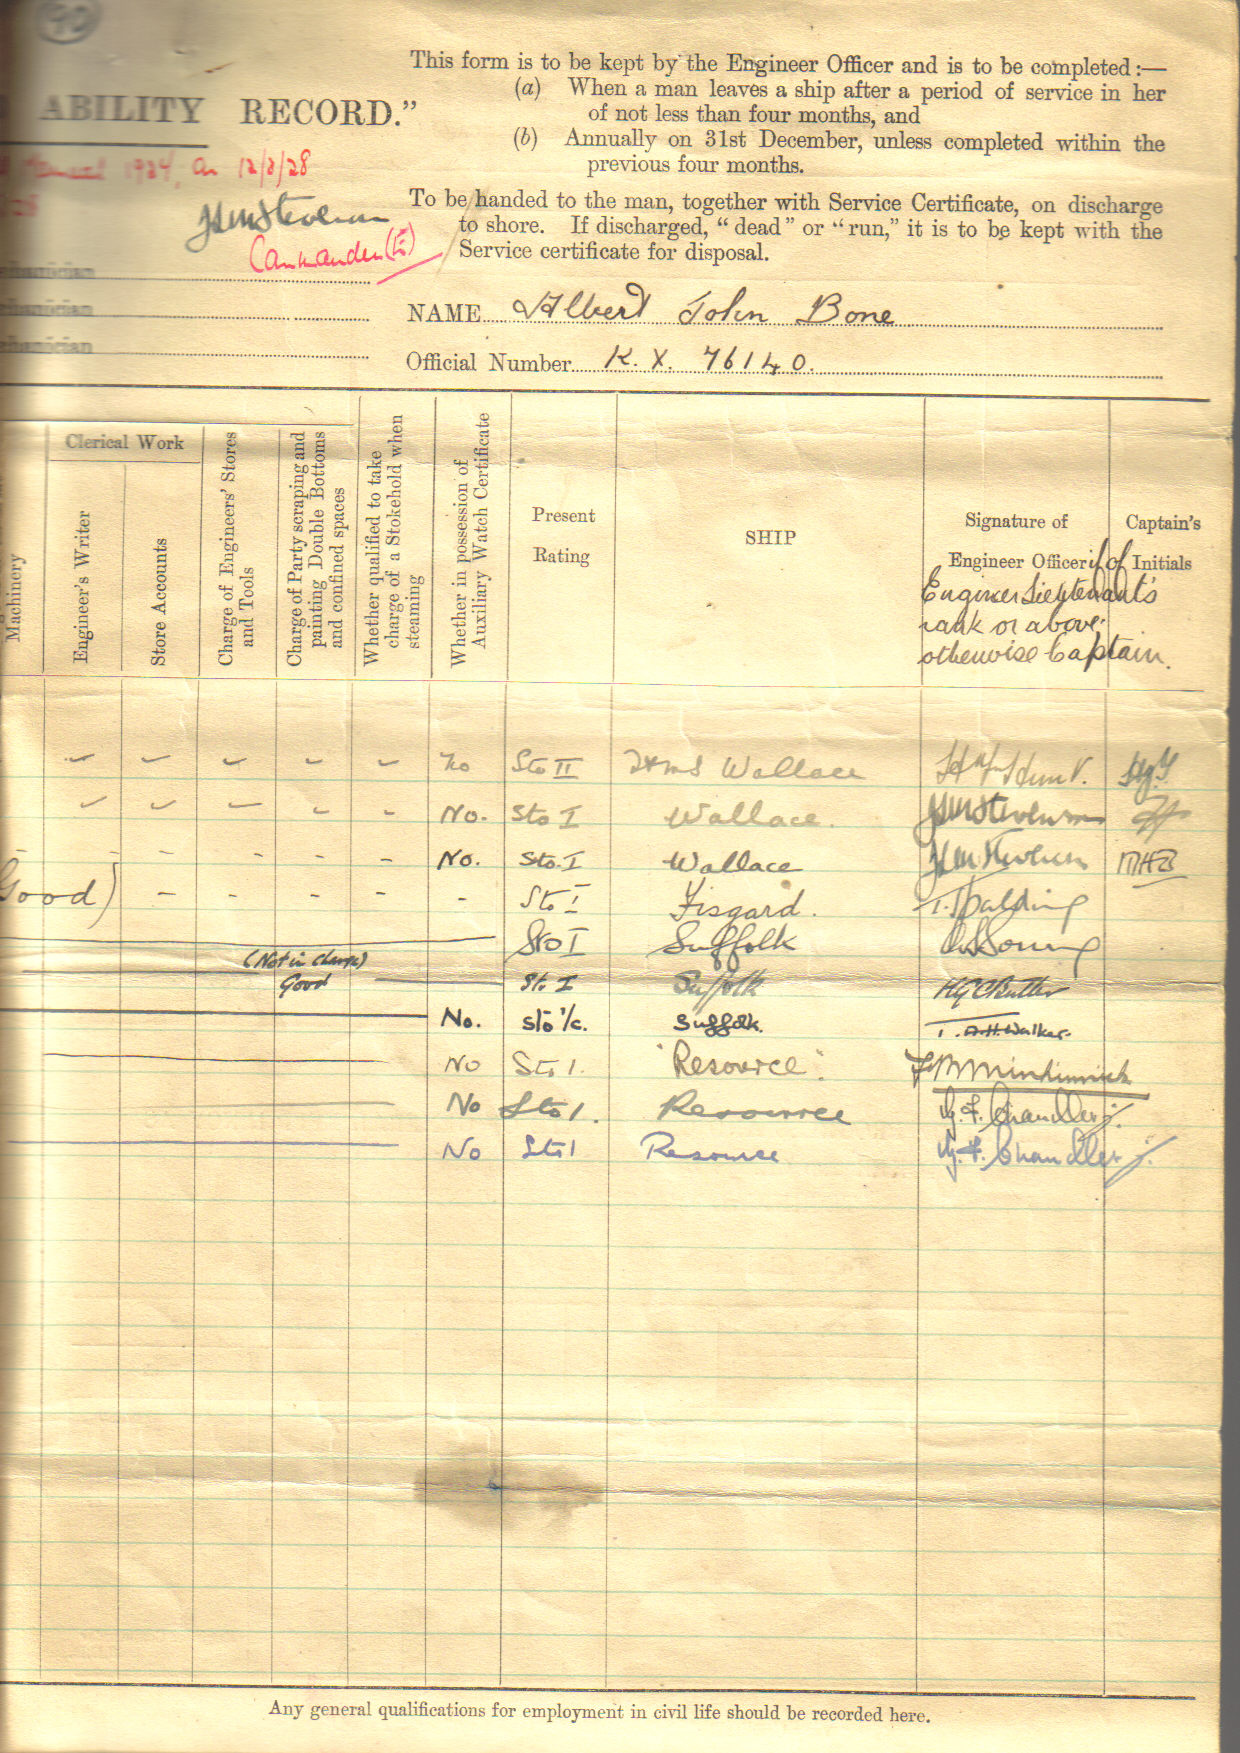 90
This form is to be kept by the Engineer Officer and is to be completed:—
(a) When a man leaves a ship after a period of service in her
of not less than four months, and
ABILITY RECORD."
(b) Annually on 31st December, unless completed within the
previous four months.
1924, on 12/2/28
To be handed to the man, together with Service Certificate, on discharge
to shore. If discharged, "dead" or "run," it is to be kept with the
Service certificate for disposal.
Commander (E)
NAME Albert John Bone
Official Number K. X. 76140.
Machinery
Clerical Work
Engineer's Writer
Store Accounts
Charge of Engineers' Stores and Tools
Charge of Party scraping and painting Double Bottoms and confined spaces
Whether qualified to take charge of a Stokehold when steaming
Whether in possession of Auxiliary Watch Certificate
Present Rating
SHIP
Signature of Engineer Officer if of Engineer Lieutenant's rank or above otherwise Captain.
Captain's Initials
No Sto II HMS Wallace
No. Sto I Wallace.
No. Sto. I Wallace MHB
Good) - - - - - Sto I Fisgard. Spalding
Sto I Suffolk
(Not in charge)
Good Sto. I Suffolk
No. Sto 1/c. Suffolk. A.H. Walker.
No Sto 1. "Resource".
No Sto 1. Resource G. F. Chandler
No Sto 1 Resource G. F. Chandler
Any general qualifications for employment in civil life should be recorded here.